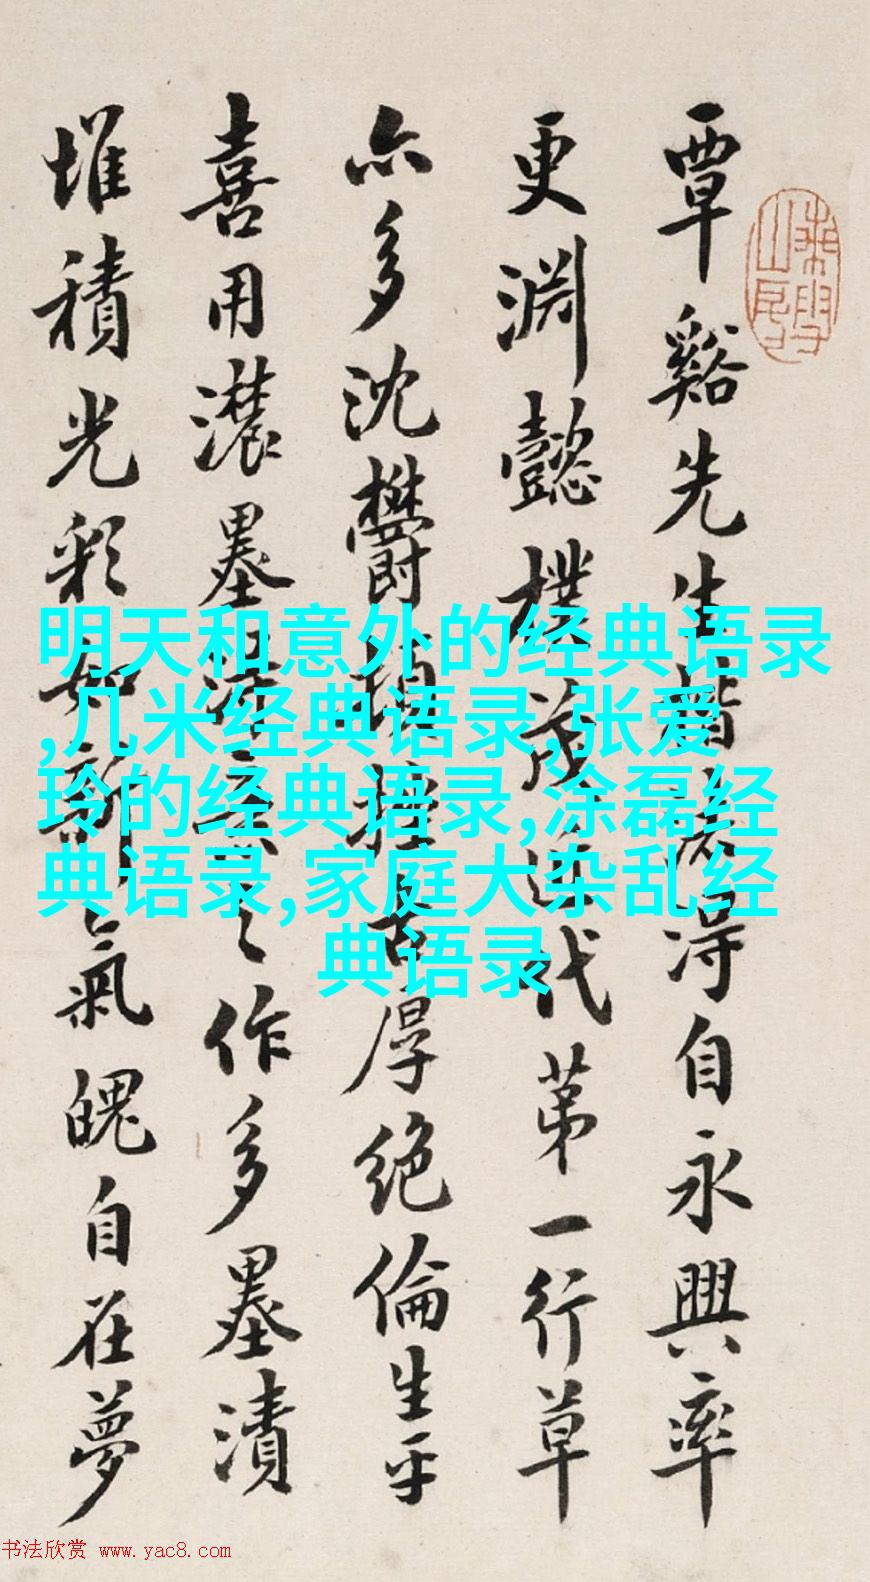 覃谿先生楷法得自永興率
更淵懿樸茂近代第一行草
亦多沈鬱頓挫古厚絕倫生平
喜用濃墨之作多墨漬
堆積光彩如新氣魄自在夢
明天和意外的经典语录
,几米经典语录,张爱
玲的经典语录,涂磊经
典语录,家庭大杂乱经
典语录
书法欣赏 www.yac8.com